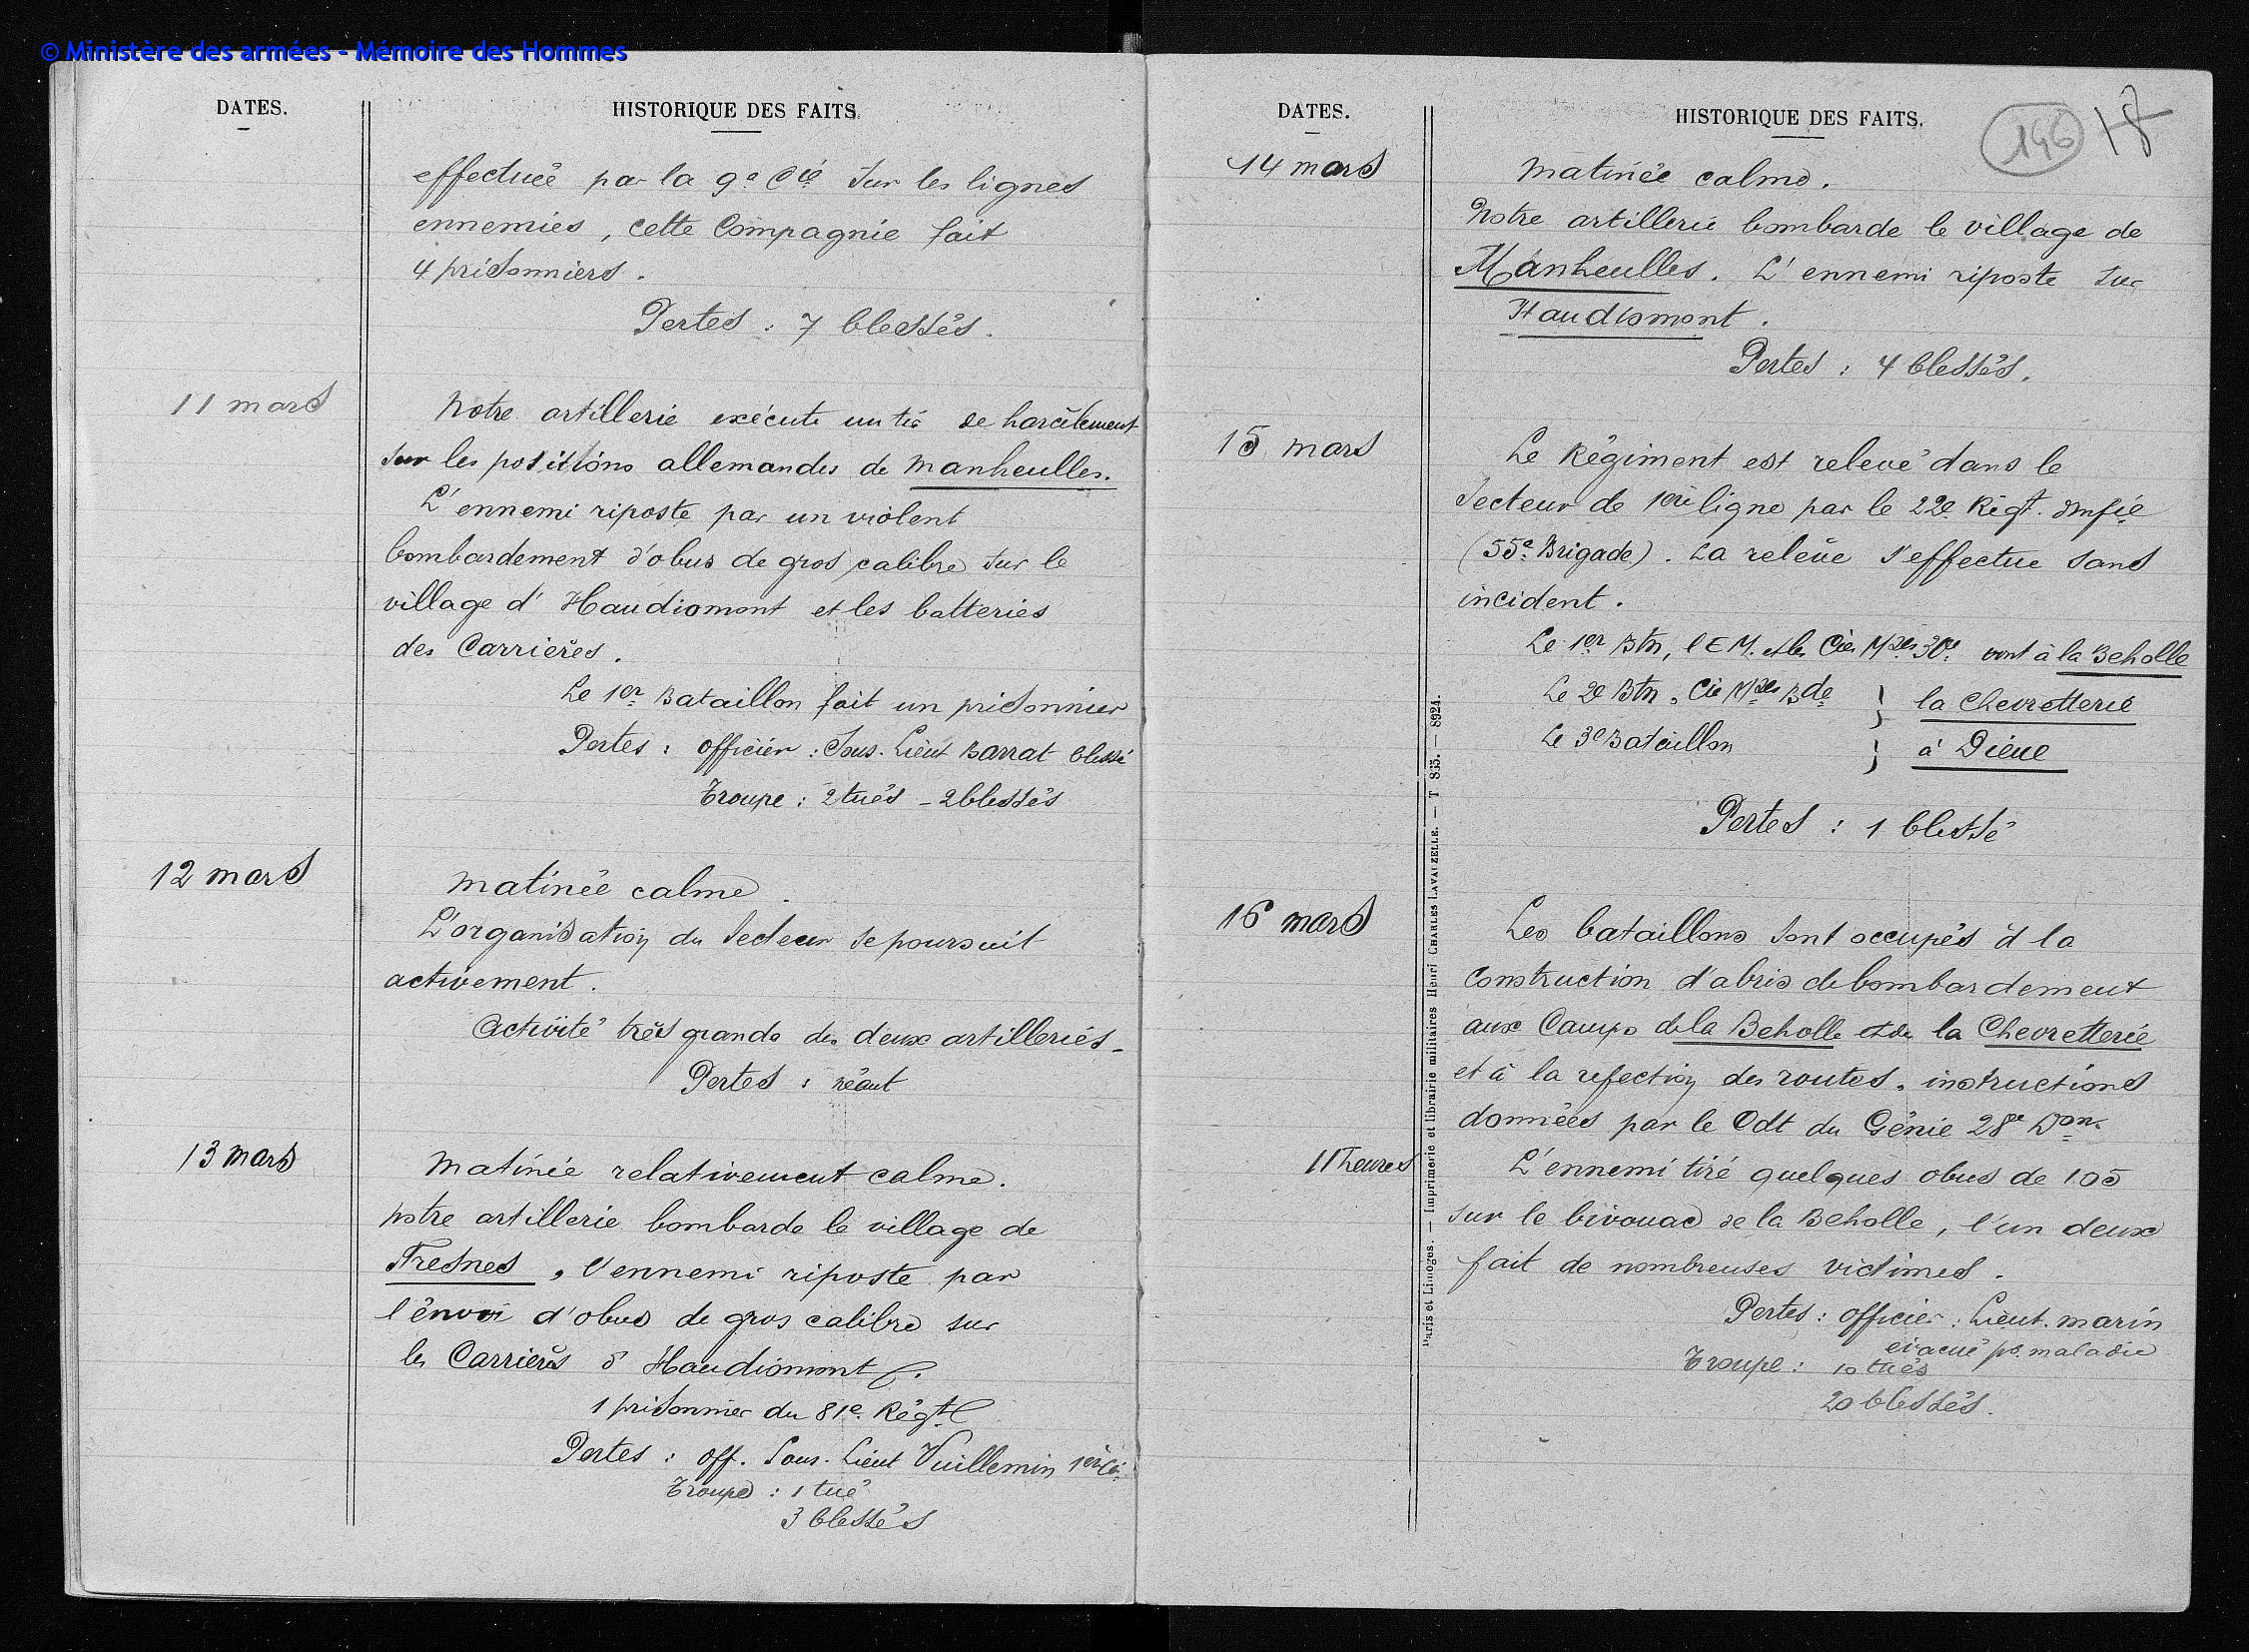 © Ministère des armées - Mémoire des Hommes
DATES.
HISTORIQUE DES FAITS.
effectuée par la 9e Cie sur les lignes
ennemies, cette Compagnie fait
4 prisonniers.
Pertes : 7 blessés.
11 mars
Notre artillerie exécute un tir de harcèlement
sur les positions allemandes de Manheulles.
L'ennemi riposte par un violent
bombardement d'obus de gros calibre sur le
village d'Haudiomont et les batteries
des Carrières.
Le 1er Bataillon fait un prisonnier
Pertes : officier : Sous-Lieut Barrat blessé
Troupe : 2 tués - 2 blessés
12 mars
Matinée calme.
L'organisation du secteur se poursuit
activement.
Activité très grande des deux artilleries.
Pertes : néant
13 mars
Matinée relativement calme.
Notre artillerie bombarde le village de
Fresnes, l'ennemi riposte par
l'envoi d'obus de gros calibre sur
les Carrières d'Haudiomont.
1 prisonnier du 81e Régt
Pertes : off. Sous-Lieut Vuillemin 1ère Cie
Troupe : 1 tué
3 blessés
DATES.
HISTORIQUE DES FAITS.
146
18
14 mars
Matinée calme.
Notre artillerie bombarde le village de
Manheulles. L'ennemi riposte sur
Haudiomont.
Pertes : 4 blessés.
15 mars
Le Régiment est relevé dans le
secteur de 1ère ligne par le 22e Régt. d'Infie
(55e Brigade). La relève s'effectue sans
incident.
Le 1er Btn, l'E.M. et les Cies Mses 30e vont à la Beholle
Le 2e Btn, Cie Mses Bde } la Chevretterie
Le 3e Bataillon } à Dieue
Pertes : 1 blessé
16 mars
Les bataillons sont occupés à la
construction d'abris de bombardement
aux Camps de la Beholle et de la Chevretterie
et à la refection des routes, instructions
données par le Cdt du Génie 28e Don.
11 heures
L'ennemi tire quelques obus de 105
sur le bivouac de la Beholle, l'un deux
fait de nombreuses victimes.
Pertes : officier : Lieut. Marin
évacué pr. maladie
Troupe : 10 tués
20 blessés.
Paris et Limoges. — Imprimerie et librairie militaires Henri CHARLES-LAVAUZELLE. — T 835. — 8924.